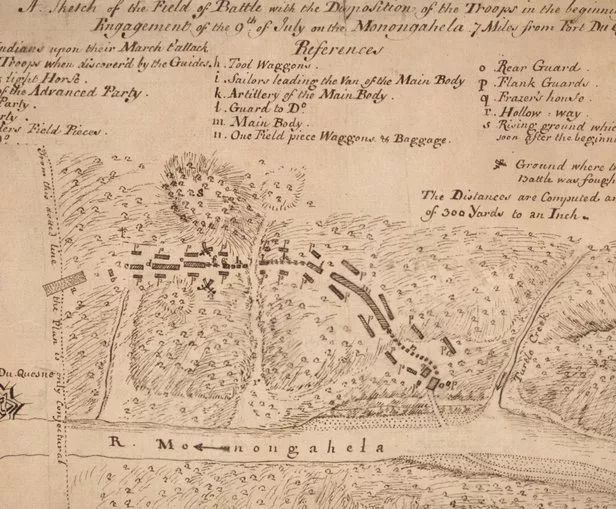 A Sketch of the Field of Battle with the Disposition of the Troops in the beginnin
Engagement of the 9th of July on the Monongahela 7 Miles from Fort Du Q
References
Indians upon their March t'attack
Troops when discover'd by the Guides.
light Horse.
of the Advanced Party.
Party.
rty.
ters Field Pieces.
h. Tool Waggons.
i Sailors leading the Van of the Main Body
k. Artillery of the Main Body.
l. Guard to Do.
m. Main Body.
n. One Field piece Waggons & Baggage.
o Rear Guard.
p. Flank Guards.
q Frazer's house.
r. Hollow way.
s Rising ground whic
soon after the beginn
Ground where t
Battle was fough
The Distances are Computed an
of 300 Yards to an Inch.
From this dotted line the Plan is only Conjectural
Du Quesne
Turtle Creek
R. Monongahela